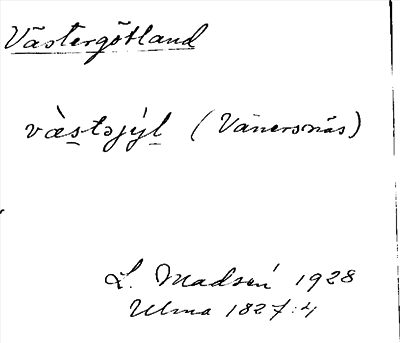 Västergötland
vàs̲təjýl̲ (Vänersnäs)
L. Madsén 1928
Ulma 1827:4